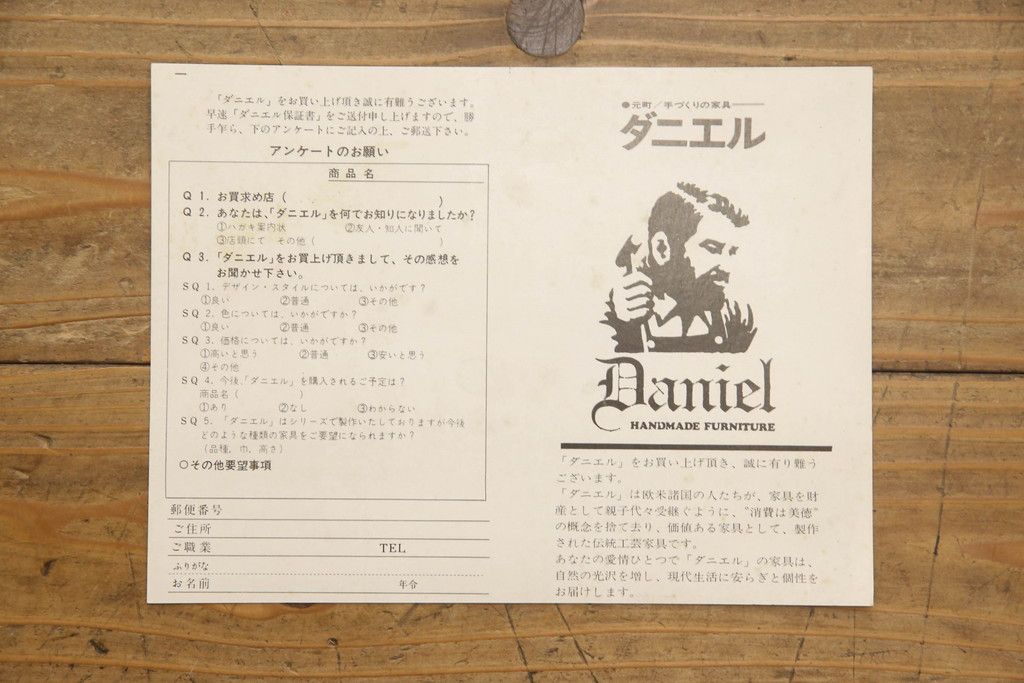 「ダニエル」をお買い上げ頂き誠に有難うございます。
早速「ダニエル保証書」をご送付申し上げますので、勝
手乍ら、下のアンケートにご記入の上、ご郵送下さい。
アンケートのお願い
商品名
Q1.お買求め店( )
Q2.あなたは、「ダニエル」を何でお知りになりましたか?
①ハガキ案内状 ②友人・知人に聞いて
③店頭にて その他( )
Q3.「ダニエル」をお買上げ頂きまして、その感想を
お聞かせ下さい。
SQ1.デザイン・スタイルについては、いかがです?
①良い ②普通 ③その他
SQ2.色については、いかがですか?
①良い ②普通 ③その他
SQ3.価格については、いかがですか?
①高いと思う ②普通 ③安いと思う
④その他
SQ4.今後、「ダニエル」を購入されるご予定は?
商品名( )
①あり ②なし ③わからない
SQ5.「ダニエル」はシリーズで製作いたしておりますが今後
どのような種類の家具をご要望になられますか?
(品種、巾、高さ)
○その他要望事項
郵便番号
ご住所
ご職業 TEL
ふりがな
お名前 年令
●元町/手づくりの家具
ダニエル
Daniel
HANDMADE FURNITURE
「ダニエル」をお買い上げ頂き、誠に有り難う
ございます。
「ダニエル」は欧米諸国の人たちが、家具を財
産として親子代々受継ぐように、"消費は美徳"
の概念を捨て去り、価値ある家具として、製作
された伝統工芸家具です。
あなたの愛情ひとつで「ダニエル」の家具は、
自然の光沢を増し、現代生活に安らぎと個性を
お届けします。